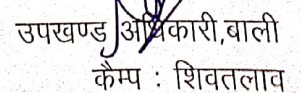 उपखण्ड अधिकारी,बाली
कैम्प : शिवतलाव